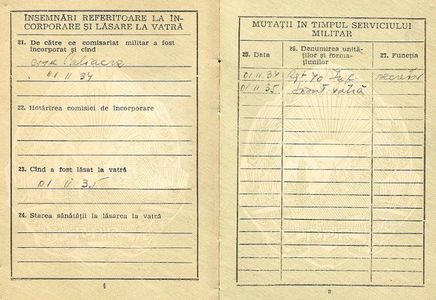 ÎNSEMNĂRI REFERITOARE LA ÎN-
CORPORARE ȘI LĂSARE LA VATRĂ
21. De către ce comisariat militar a fost
încorporat și cînd
Caliacra
01 11 34
22. Hotărîrea comisiei de încorporare
23. Cînd a fost lăsat la vatră
01 11 35
24. Starea sănătății la lăsarea la vatră
4
MUTAȚII ÎN TIMPUL SERVICIULUI
MILITAR
25. Data
26. Denumirea unită-
ților și forma-
țiunilor
27. Funcția
01 11 34 Rgt 40 Inf
01 11 35 vatră